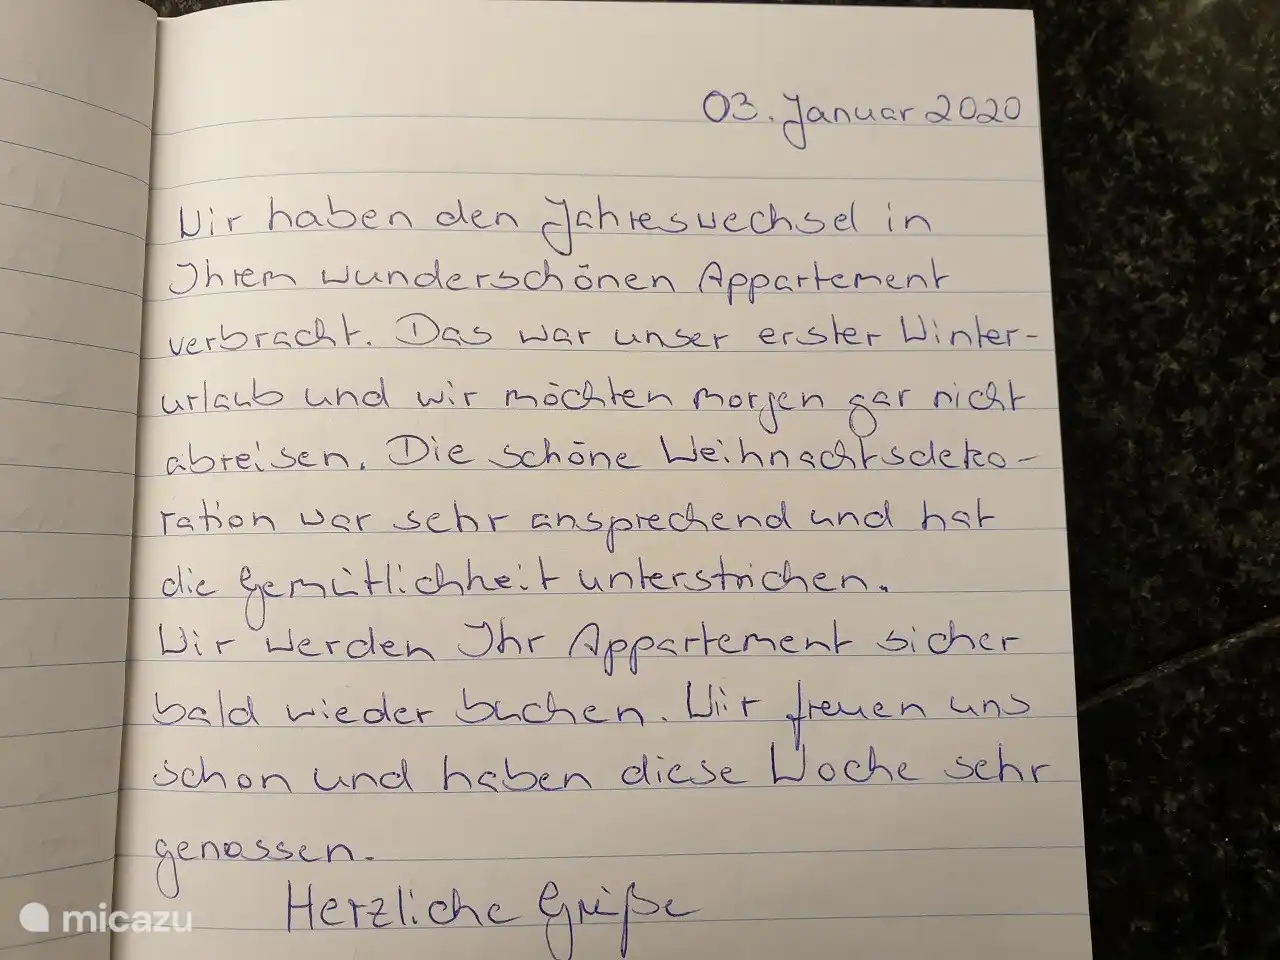 03. Januar 2020
Wir haben den Jahreswechsel in
Ihrem wunderschönen Appartement
verbracht. Das war unser erster Winter-
urlaub und wir möchten morgen gar nicht
abreisen. Die schöne Weihnachtsdeko-
ration war sehr ansprechend und hat
die Gemütlichkeit unterstrichen.
Wir werden Ihr Appartement sicher
bald wieder buchen. Wir freuen uns
schon und haben diese Woche sehr
genossen.
Herzliche Grüße
micazu